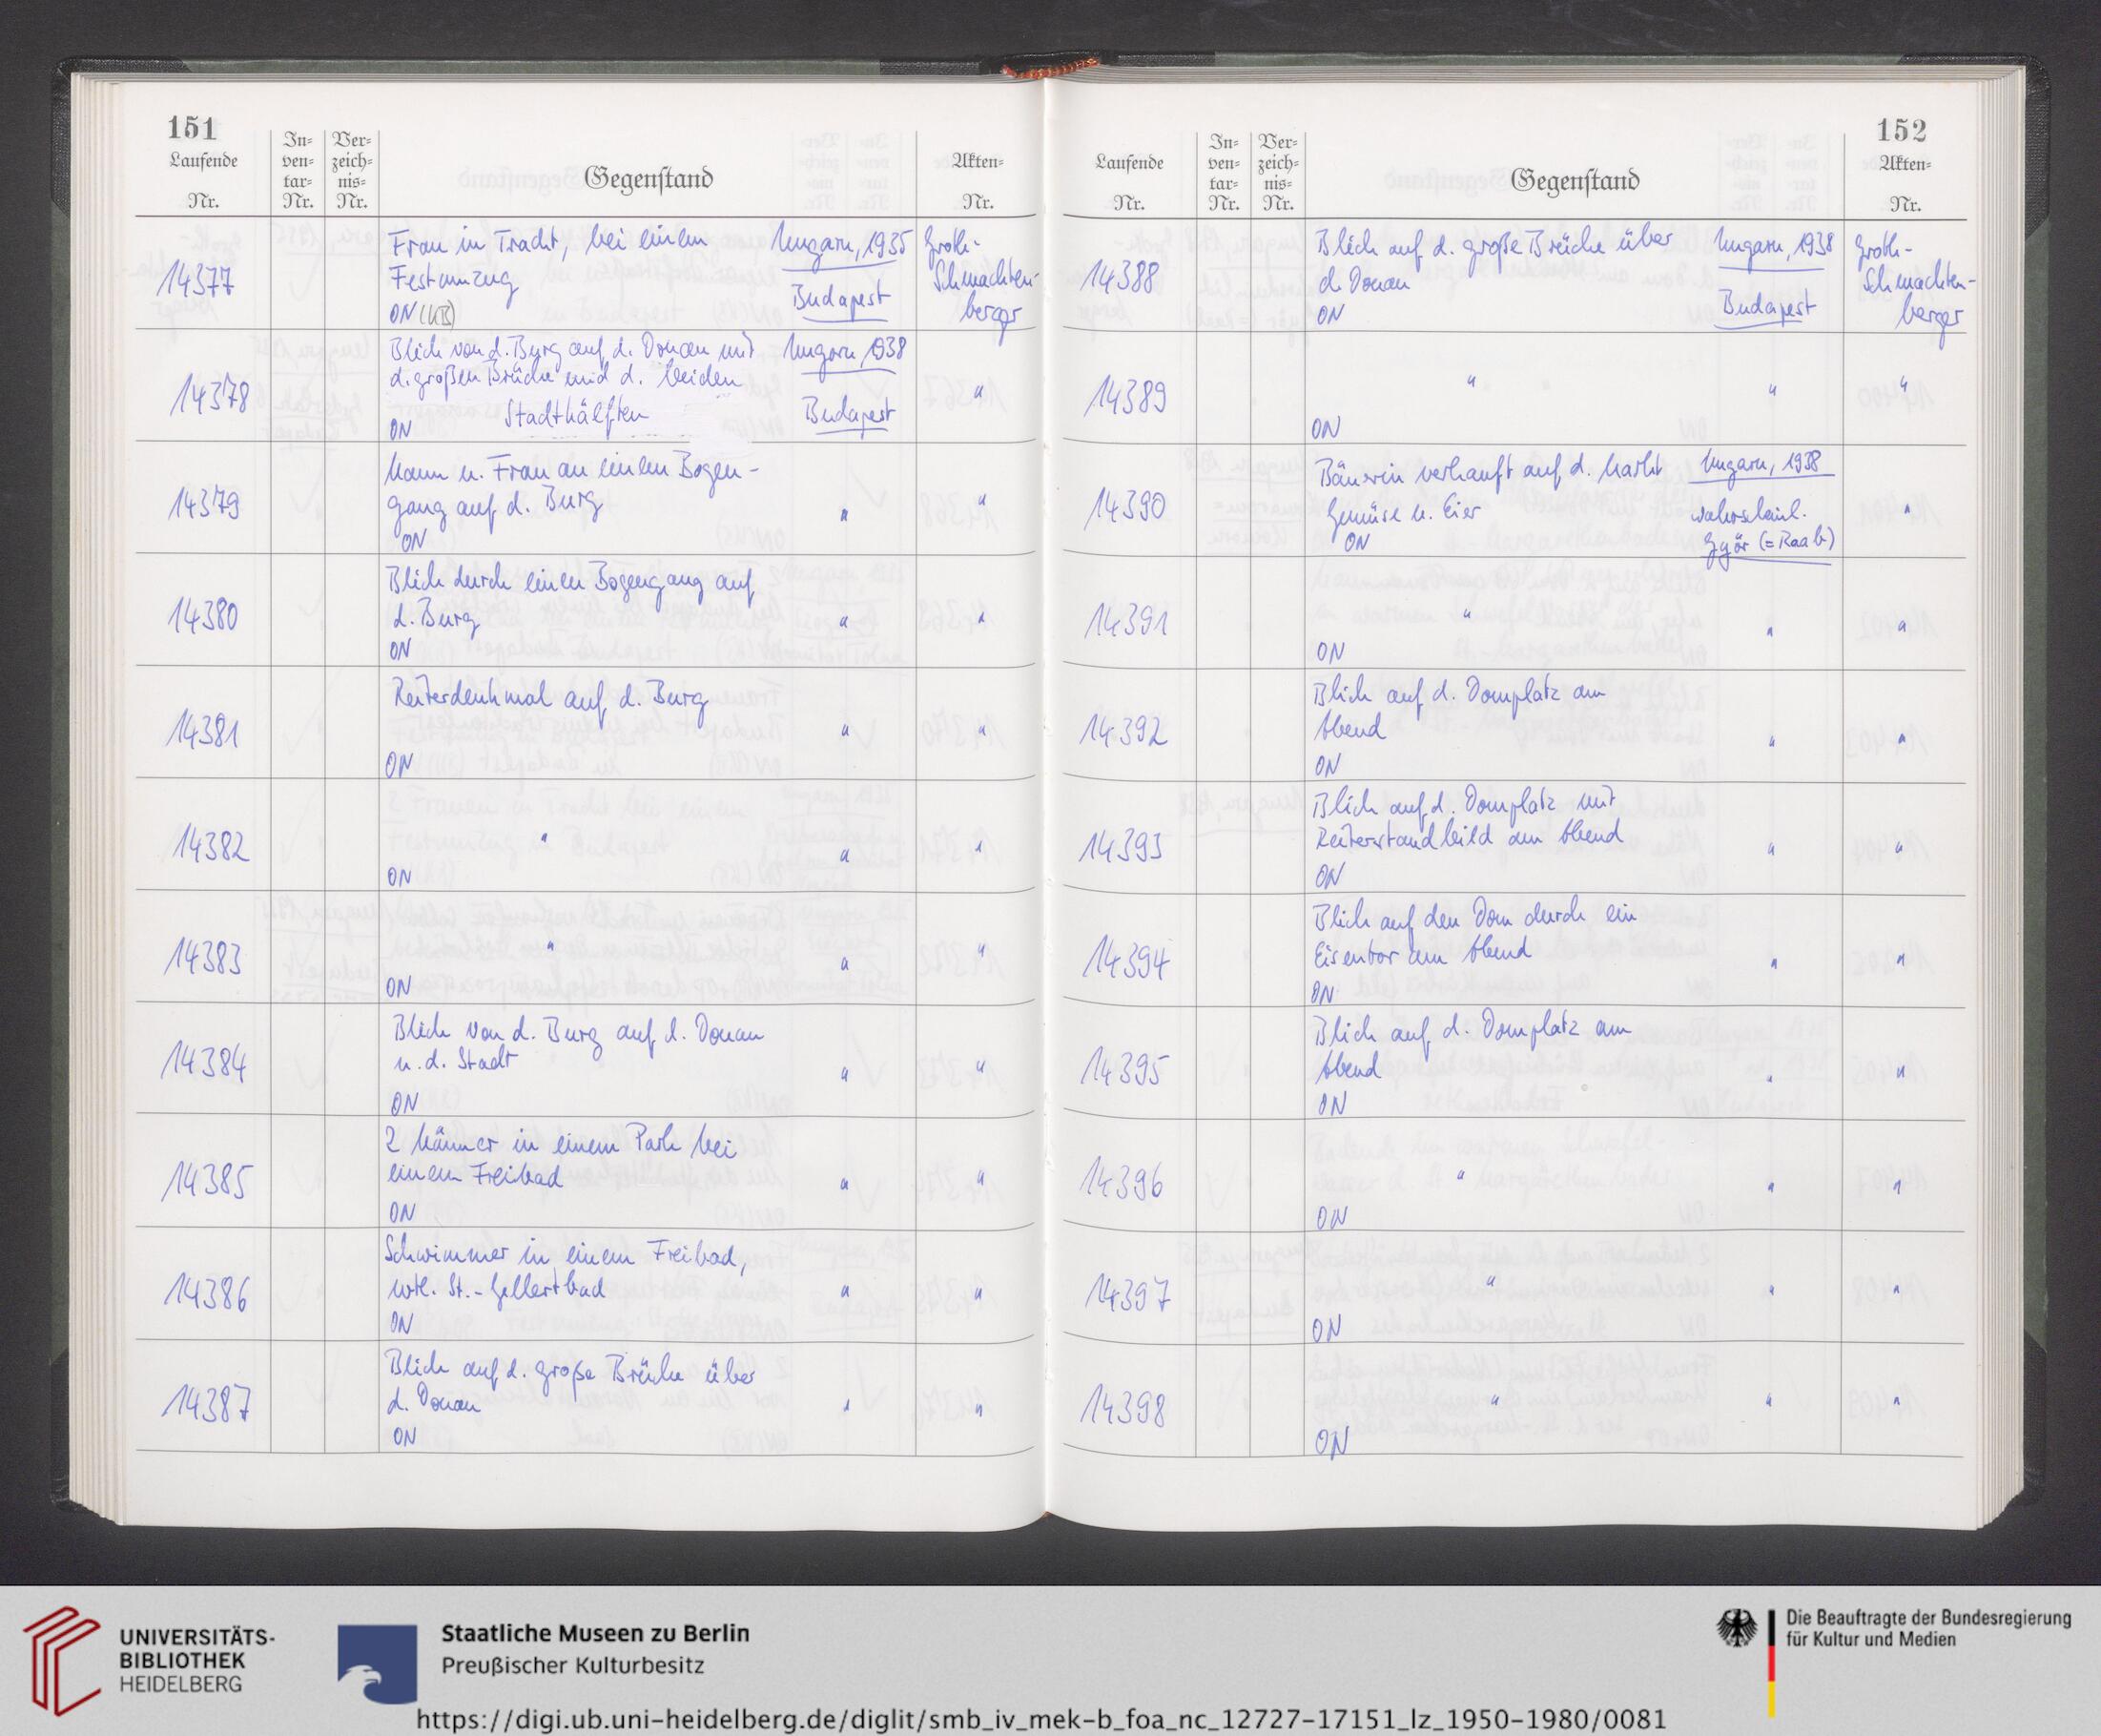 151
Laufende Nr.
In-ven-tar-Nr.
Ver-zeich-nis-Nr.
Gegenstand
Akten-Nr.
14377
Frau in Tracht, bei einem
Festumzug
ON (KB)
Ungarn, 1935
Budapest
Groth-
Schmachten-
berger
14378
Blick von d. Burg auf d. Donau mit
d. großen Brücke und d. beiden
Stadthälften
ON
Ungarn, 1938
Budapest
"
14379
Mann u. Frau an einem Bogen-
gang auf d. Burg
ON
"
"
14380
Blick durch einen Bogengang auf
d. Burg
ON
"
"
14381
Reiterdenkmal auf d. Burg
ON
"
"
14382
"
ON
"
"
14383
"
ON
"
"
14384
Blick von d. Burg auf d. Donau
u. d. Stadt
ON
"
"
14385
2 Männer in einem Park bei
einem Freibad
ON
"
"
14386
Schwimmer in einem Freibad,
wtl. St.-Gellertbad
ON
"
"
14387
Blick auf d. große Brücke über
d. Donau
ON
"
"
152
Laufende Nr.
In-ven-tar-Nr.
Ver-zeich-nis-Nr.
Gegenstand
Akten-Nr.
14388
Blick auf d. große Brücke über
d. Donau
ON
Ungarn, 1938
Budapest
Groth-
Schmachten-
berger
14389
"
ON
"
"
14390
Bäuerin verkauft auf d. Markt
Gemüse u. Eier
ON
Ungarn, 1938
wahrscheinl.
Györ (=Raab)
"
14391
"
ON
"
"
14392
Blick auf d. Domplatz am
Abend
ON
"
"
14393
Blick auf d. Domplatz mit
Reiterstandbild am Abend
ON
"
"
14394
Blick auf den Dom durch ein
Eisentor am Abend
ON
"
"
14395
Blick auf d. Domplatz am
Abend
ON
"
"
14396
"
ON
"
"
14397
"
ON
"
"
14398
"
ON
"
"
UNIVERSITÄTS-
BIBLIOTHEK
HEIDELBERG
Staatliche Museen zu Berlin
Preußischer Kulturbesitz
Die Beauftragte der Bundesregierung
für Kultur und Medien
https://digi.ub.uni-heidelberg.de/diglit/smb_iv_mek-b_foa_nc_12727-17151_lz_1950-1980/0081